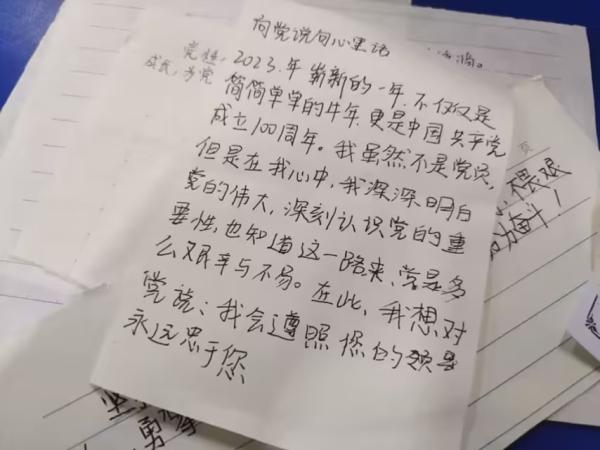 向党说句心里话
2023年崭新的一年,不仅仅是
简简单单的牛年,更是中国共产党
成立100周年。我虽然不是党员,
但是在我心中,我深深明白
党的伟大,深刻认识党的重
要性,也知道这一路来,党是多
么艰辛与不易。在此,我想对
党说:我会遵照您的领导
永远忠于您
成长,为党
不畏艰
力奋斗!
勇